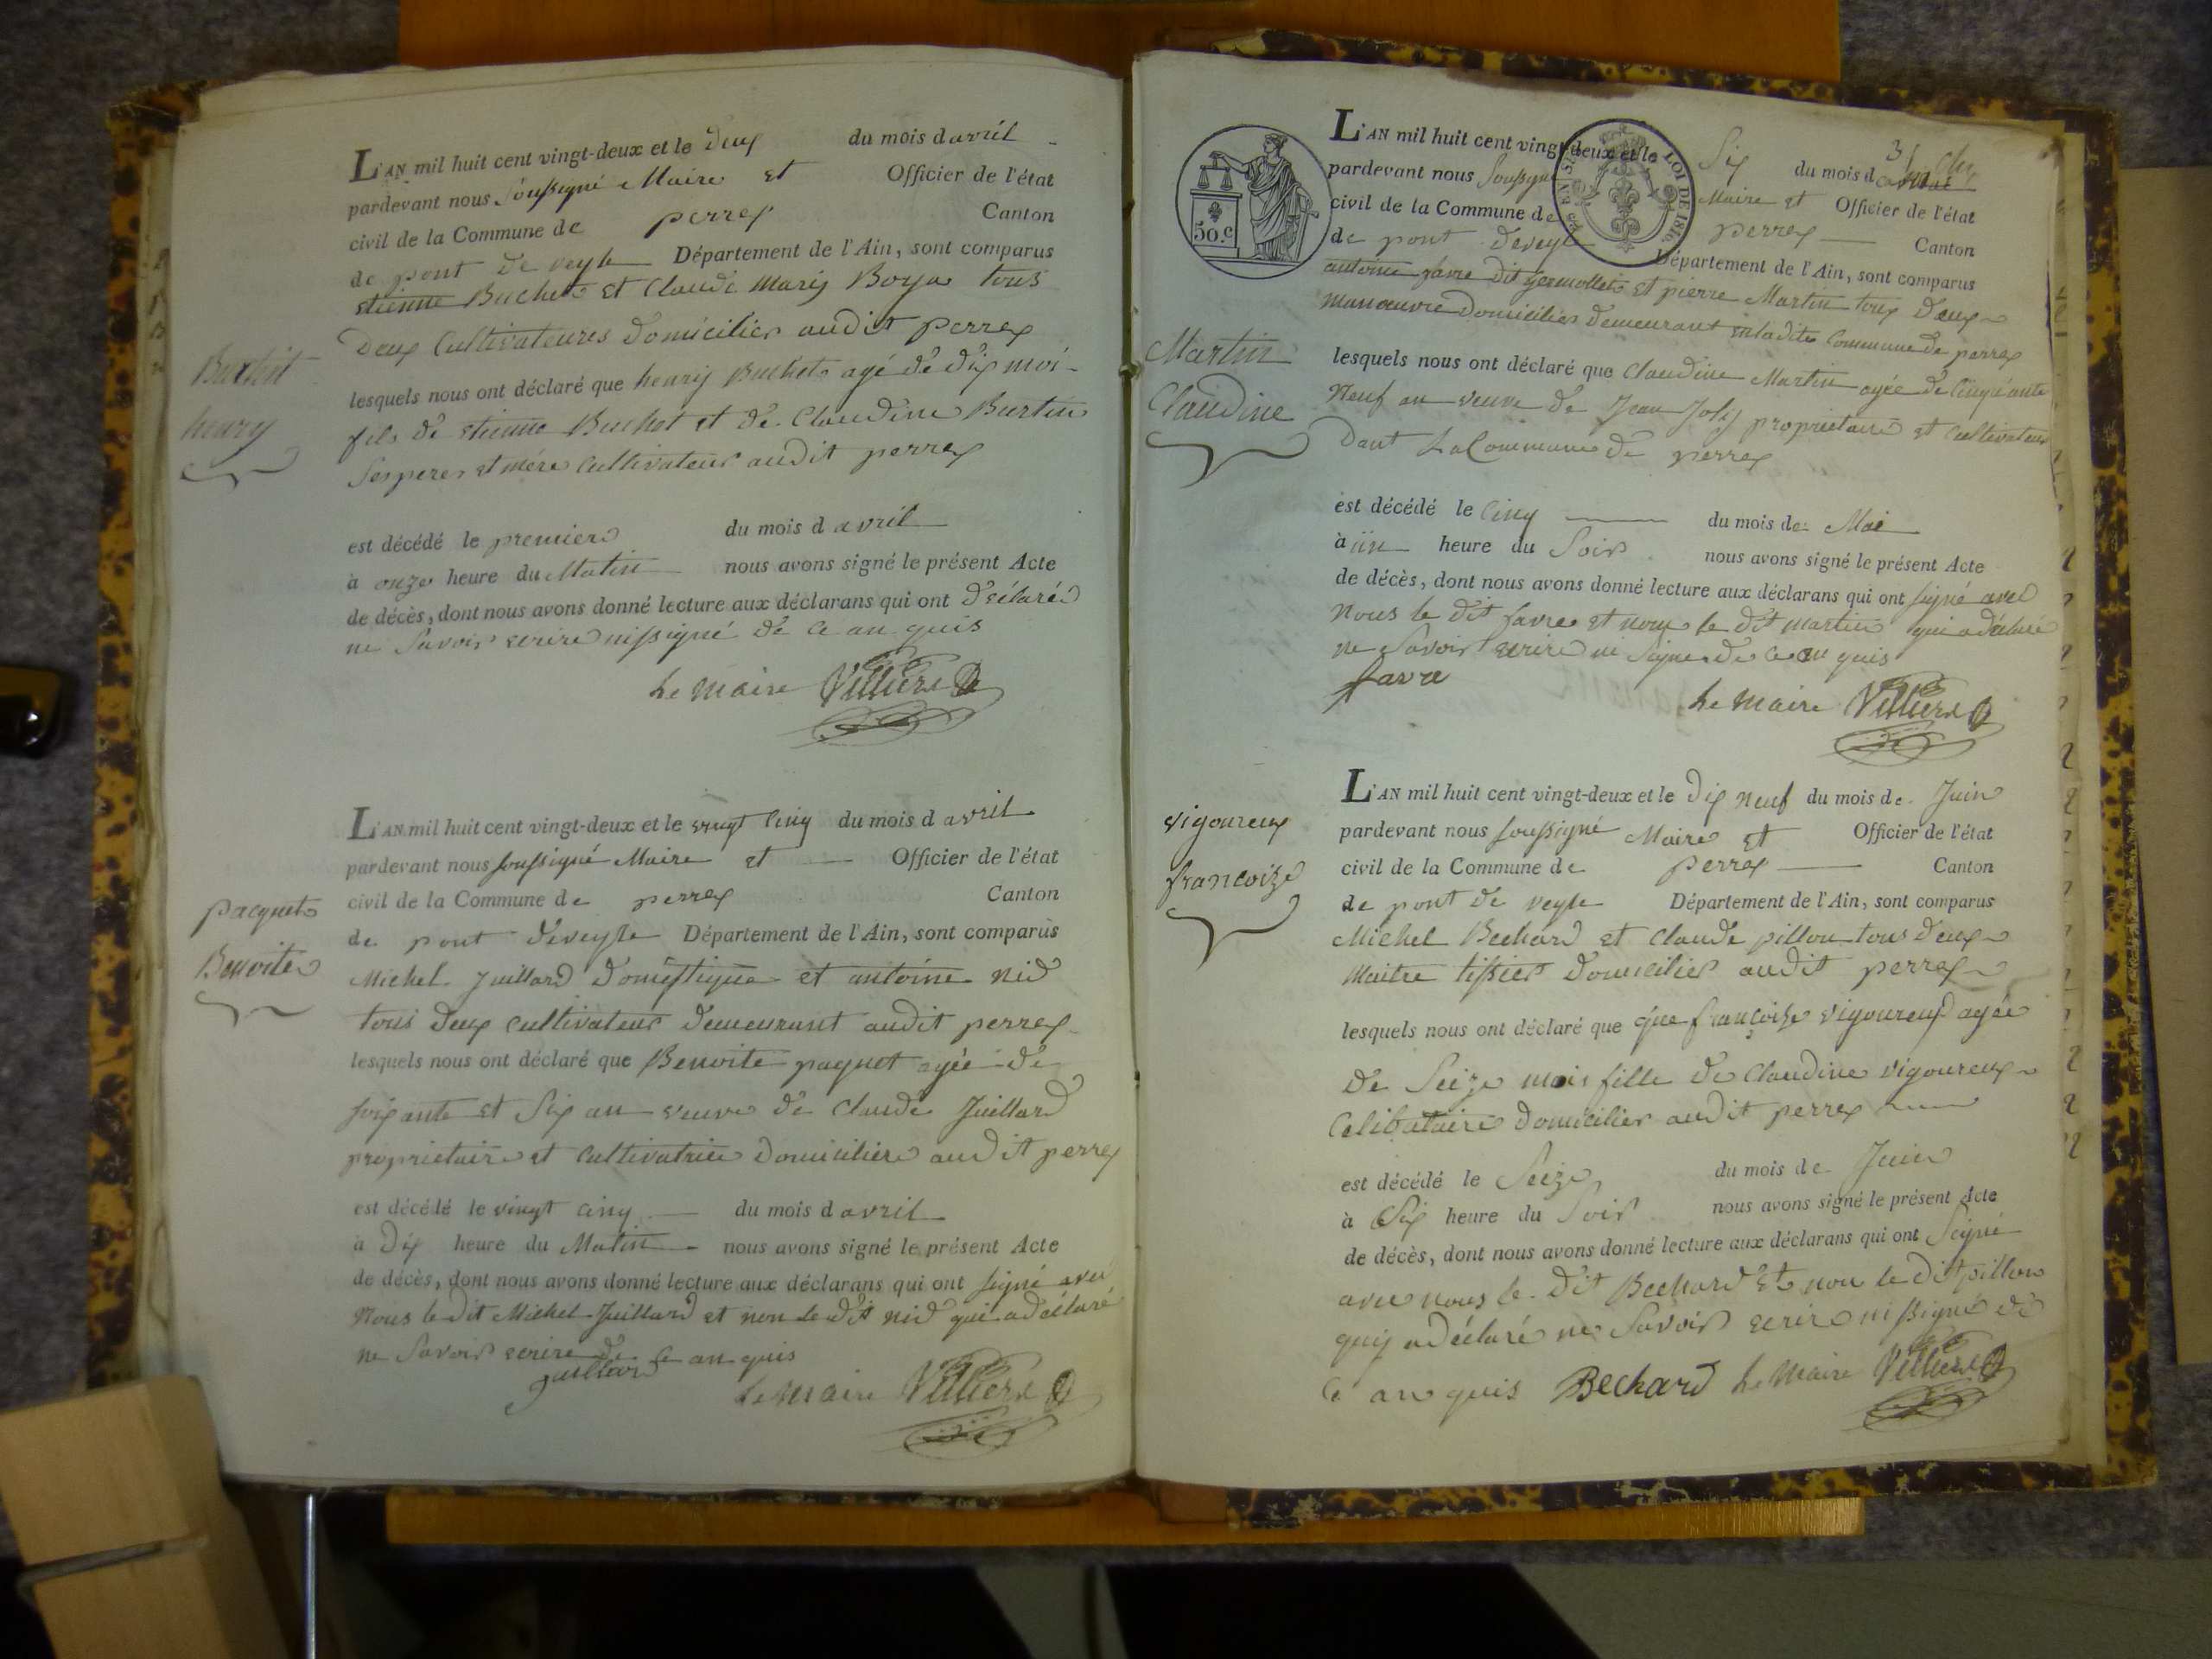 L'AN mil huit cent vingt-deux et le Deux du mois d avril
pardevant nous soussigné Maire et Officier de l'état
civil de la Commune de perrex Canton
de pont de veyle Département de l'Ain, sont comparus
etienne Buchet et Claude Mary Boyer tous
Deux Cultivateures domicilier audit perrex
lesquels nous ont déclaré que henry Buchet agé de dix moi-
fils de etienne Buchet et de Claudine Burtin
ses peres et mére Cultivateur audit perrex
Buchet
henry
est décédé le premier du mois d avril
à onze heure du Matin nous avons signé le présent Acte
de décès, dont nous avons donné lecture aux déclarans qui ont déclaré
ne Savoir ecrire ni ssigné de ce an quis
Le Maire Villiere
L'AN mil huit cent vingt-deux et le vingt cinq du mois d avril
pardevant nous soussigné Maire et Officier de l'état
civil de la Commune de perrex Canton
de pont deveyle Département de l'Ain, sont comparus
pacquet
Benoite
Michel Juillard domestique et antoine nid
tous deux cultivateur demeurant audit perrex
lesquels nous ont déclaré que Benoite paquet agée de
soixante et six an veuve de Claude Juillard
proprietaire et Cultivatrice domiciliere audit perrex
est décédé le vingt cinq du mois d avril
à Dix heure du Matin nous avons signé le présent Acte
de décès, dont nous avons donné lecture aux déclarans qui ont signé avec
Nous le dit Michel Juillard et non le dit nid qui a déclaré
ne Savoir ecrire de ce an quis
Juillard
Le Maire Villiere
50.c
LOI DE 1816
L'AN mil huit cent vingt-deux et le Six du mois d
pardevant nous soussigné Maire et Officier de l'état
civil de la Commune de perrex Canton
de pont deveyle Département de l'Ain, sont comparus
antoine favre dit et pierre Martin tous deux
manœuvre Domicilier demeurant en ladite Commune de perrex
Martin
Claudine
lesquels nous ont déclaré que Claudine Martin agée de Cinquante
Neuf an veuve de Jean Joly proprietaire et Cultivateur
Dant La Commune de perrex
est décédé le Cinq du mois de Mai
à un heure du Soir nous avons signé le présent Acte
de décès, dont nous avons donné lecture aux déclarans qui ont signé avec
Nous le dit favre et non le dit martin qui a déclaré
ne Savoir ecrire ni Signe de ce an quis
favre
Le Maire Villiere
L'AN mil huit cent vingt-deux et le Dix Neuf du mois de Juin
pardevant nous soussigné Maire et Officier de l'état
civil de la Commune de perrex Canton
de pont de veyle Département de l'Ain, sont comparus
vigoureux
francoize
Michel Bechard et Claude pillon tous deux
Maitre tissier domicilier audit perrex
lesquels nous ont déclaré que que françoize vigoureux agée
De Seize mois fille de Claudine vigoureux
Celibataire domicilier audit perrex
est décédé le Seize du mois de Juin
à Six heure du Soir nous avons signé le présent Acte
de décès, dont nous avons donné lecture aux déclarans qui ont Signé
avec nous le dit Bechard et non le dit pillon
quiy a déclaré ne Savoir ecrire ni ssigné de
Ce an quis Bechard Le Maire Villiere